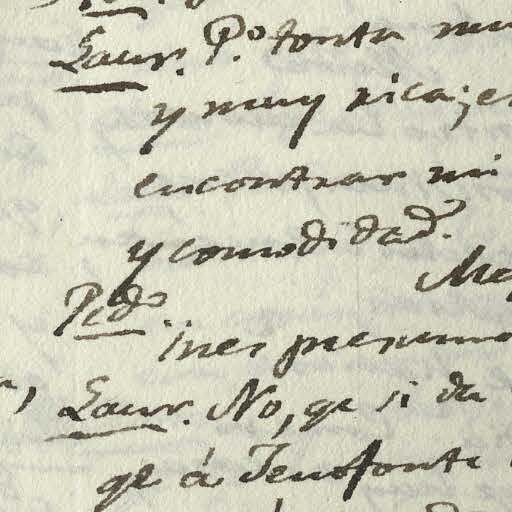 Laur. P.º tonta mu
y muy rica; en
encontrar mi
y comodidad.
Pedº. Me
Ines presumo
Laur. No, qe si da
qe á Jenofonte